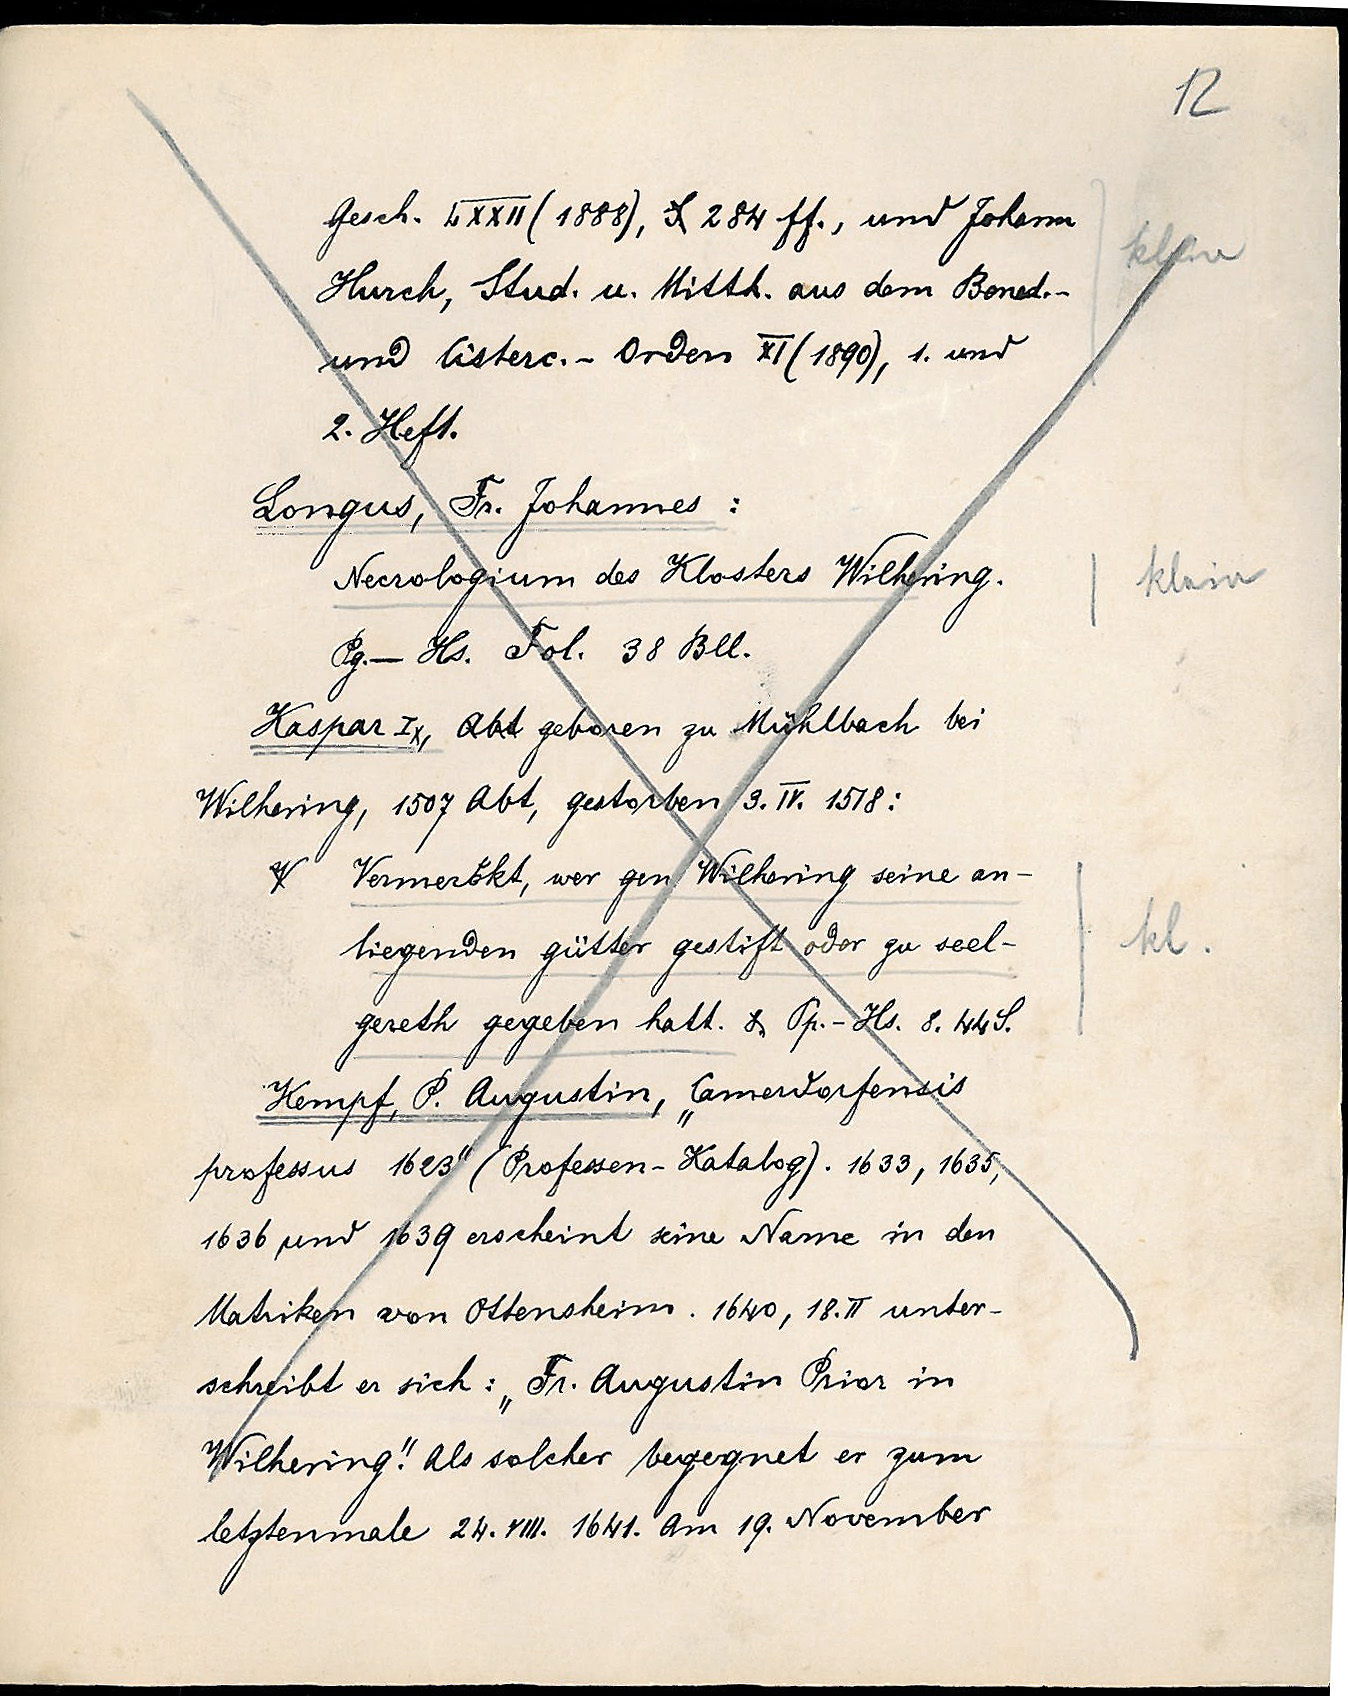 12
Gesch. LXXII (1888), S 284 ff., und Johann
klein
Hurch, Stud. u. Mitth. aus dem Bened.-
und Cisterc.- Orden XI (1890), 1. und
2. Heft.
Longus, Fr. Johannes :
Necrologium des Klosters Wilhering.
klein
Pg.— Hs. Fol. 38 Bll.
Kaspar I, Abt geboren zu Mühlbach bei
Wilhering, 1507 Abt, gestorben 3. IV. 1518:
Vermerkt, wer gen Wilhering seine an-
liegenden gütter gestift oder zu seel-
kl.
gereth gegeben hatt. Pp.- Hs. 8. 44 S.
Kempf, P. Augustin, „Camerdorfensis
professus 1623" (Professen-Katalog). 1633, 1635,
1636 und 1639 erscheint seine Name in den
Matriken von Ottensheim. 1640, 18. II unter-
schreibt er sich: „Fr. Augustin Prior in
Wilhering". Als solcher begegnet er zum
letztenmale 24. VIII. 1641. Am 19. November